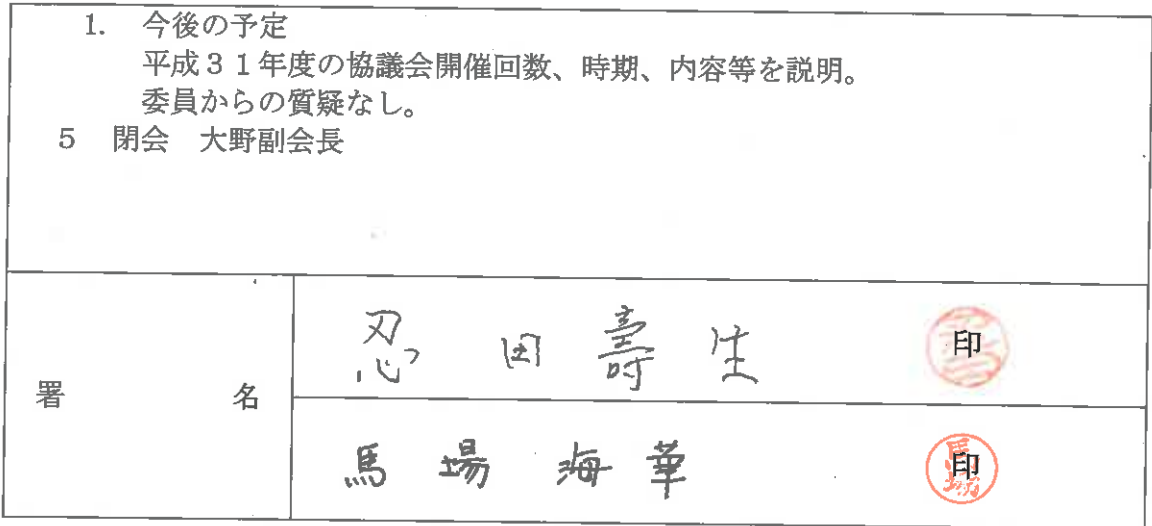 1. 今後の予定
平成31年度の協議会開催回数、時期、内容等を説明。
委員からの質疑なし。
5 閉会 大野副会長
署 名
忍田壽生 印
馬場海華 印